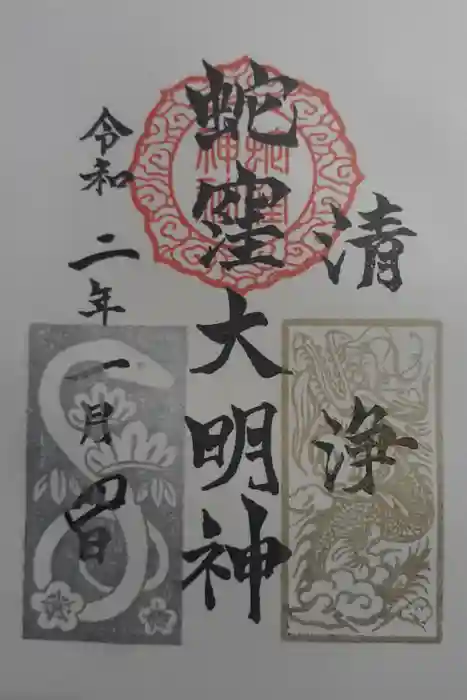 清浄
蛇窪大明神
令和二年一月四日